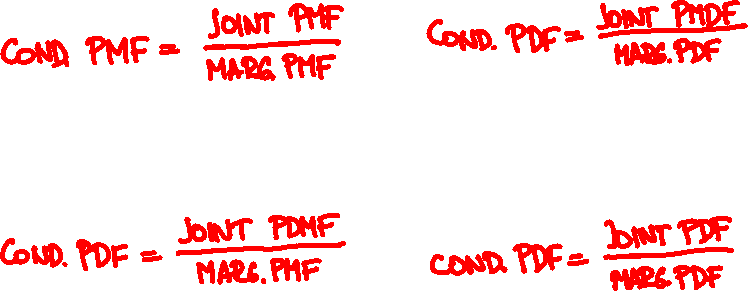 COND. PMF = JOINT PMF
MARG. PMF
COND. PDF = JOINT PMDF
MARG. PDF
COND. PDF = JOINT PDMF
MARG. PMF
COND. PDF = JOINT PDF
MARG. PDF